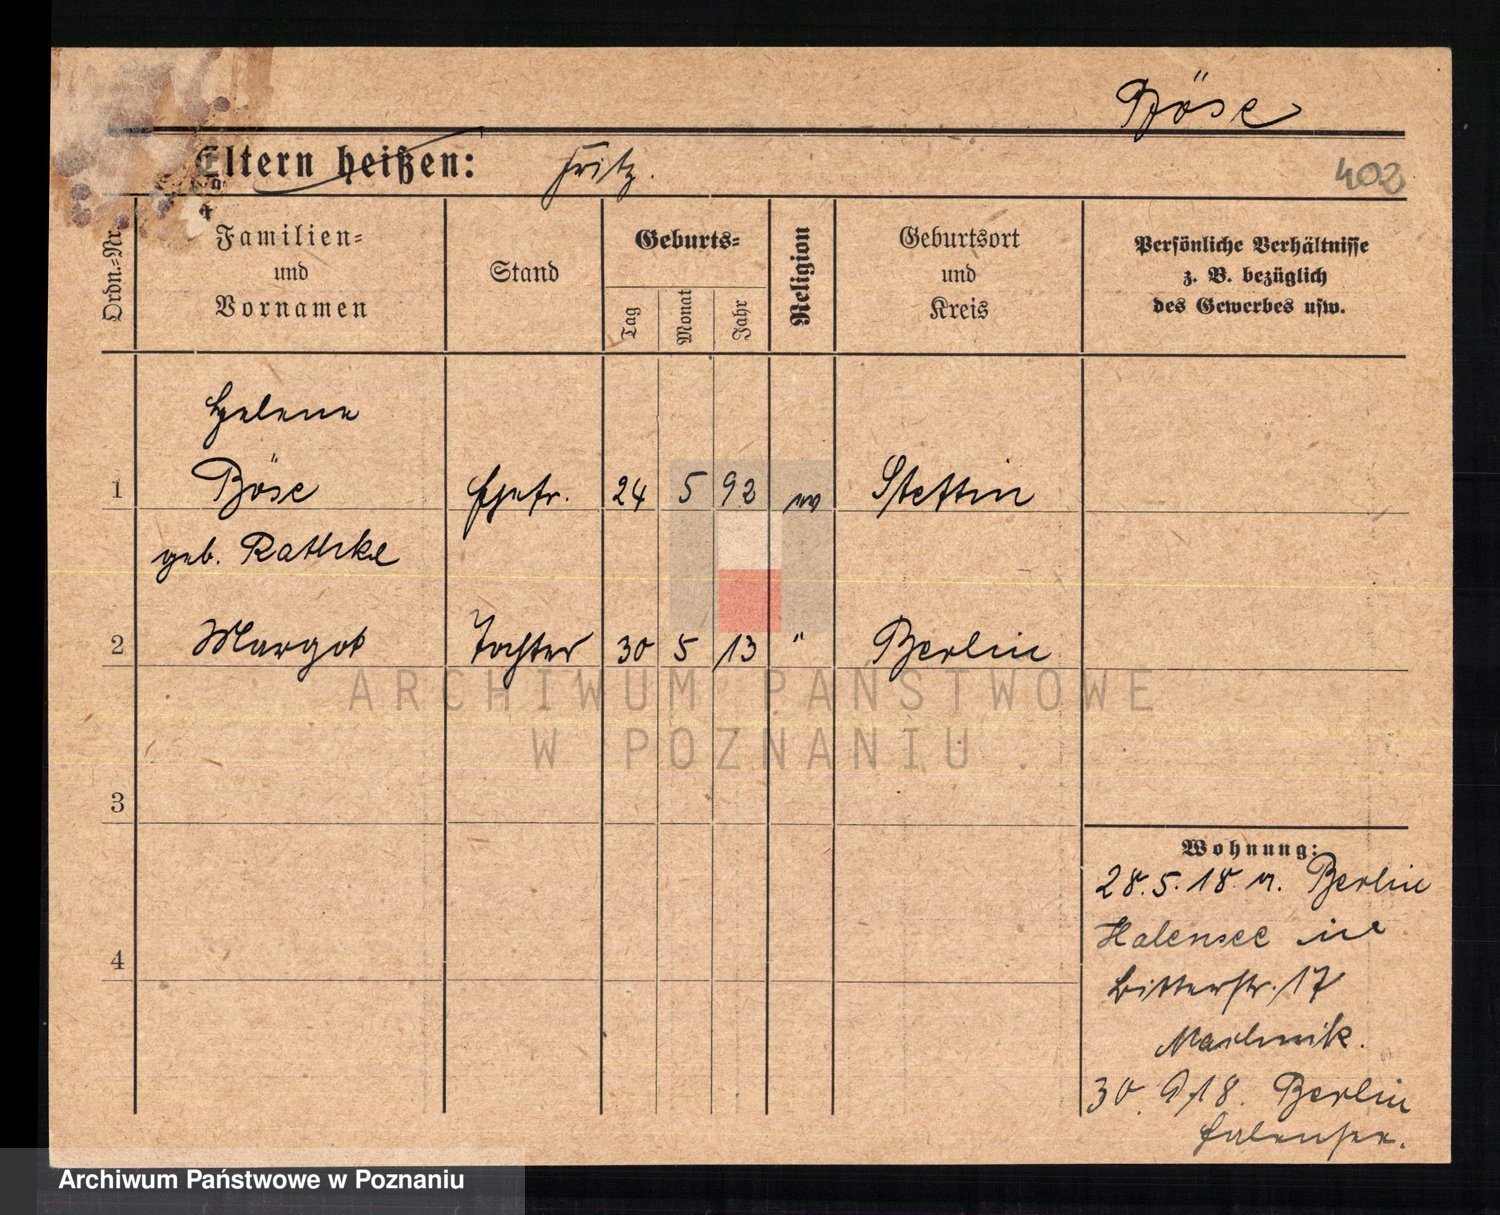 Böse
Eltern heißen: Fritz.
402
Ordn.=Nr.
Familien=
und
Vornamen
Stand
Geburts=
Tag
Monat
Jahr
Religion
Geburtsort
und
Kreis
Persönliche Verhältnisse
z. B. bezüglich
des Gewerbes usw.
Helene
1 Böse Ehefr. 24 5 92 Stettin
geb. Rathke
2 Margot Tochter 30 5 13 " Berlin
3
4
Wohnung:
28.5.18. n. Berlin
Halensee
Ritterstr. 17
30. 9. 18. Berlin
Halensee.
ARCHIWUM PAŃSTWOWE
W POZNANIU
Archiwum Państwowe w Poznaniu